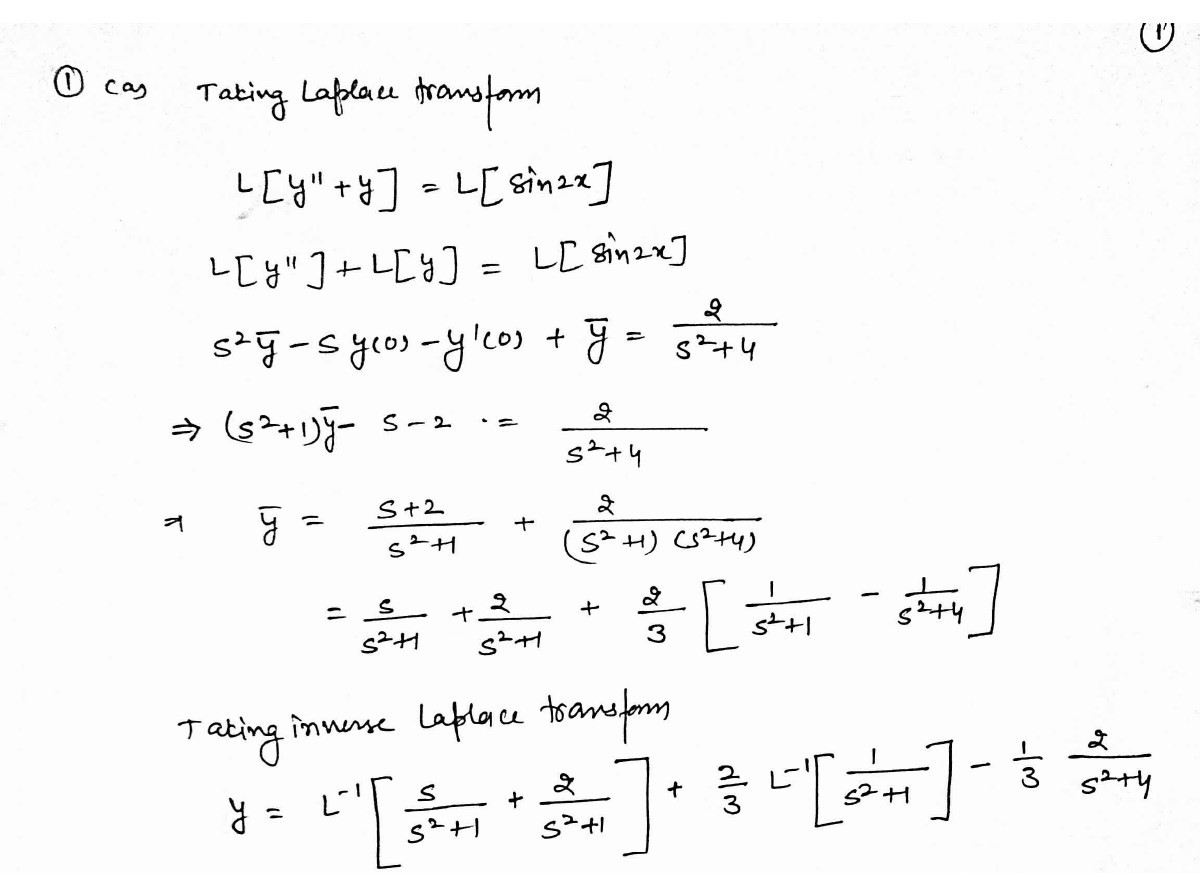 ①
① (a) Taking Laplace transform
L[y'' + y] = L[sin2x]
L[y''] + L[y] = L[sin2x]
s²ȳ - s y(0) - y'(0) + ȳ = 2/(s²+4)
⇒ (s²+1)ȳ - s - 2 . = 2/(s²+4)
⇒ ȳ = (s+2)/(s²+1) + 2/((s²+1)(s²+4))
= s/(s²+1) + 2/(s²+1) + 2/3 [1/(s²+1) - 1/(s²+4)]
Taking inverse Laplace transform
y = L⁻¹[s/(s²+1) + 2/(s²+1)] + 2/3 L⁻¹[1/(s²+1)] - 1/3 2/(s²+4)